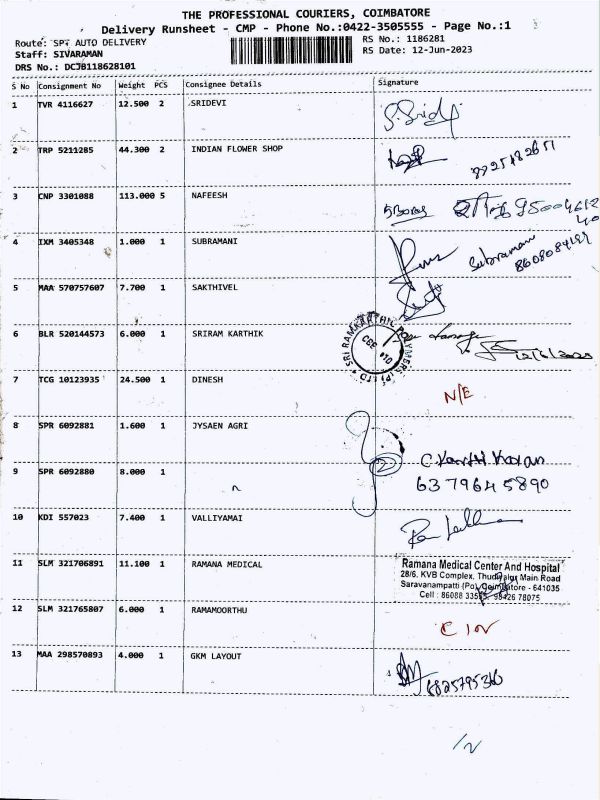 THE PROFESSIONAL COURIERS, COIMBATORE
Delivery Runsheet - CMP - Phone No.:0422-3505555 - Page No.:1
Route: SPT AUTO DELIVERY
RS No.: 1186281
Staff: SIVARAMAN
RS Date: 12-Jun-2023
DRS No.: DCJB118628101
S No Consignment No Weight PCS Consignee Details Signature
1 TVR 4116627 12.500 2 SRIDEVI S.Sridevi
2 TRP 5211285 44.300 2 INDIAN FLOWER SHOP
3 CNP 3301088 113.000 5 NAFEESH
4 IXM 3405348 1.000 1 SUBRAMANI Subramani
5 MAA 570757607 7.700 1 SAKTHIVEL
6 BLR 520144573 6.000 1 SRIRAM KARTHIK 12/6/2023
7 TCG 10123935 24.500 1 DINESH N/E
8 SPR 6092881 1.600 1 JYSAEN AGRI
9 SPR 6092880 8.000 1 6379645890
10 KDI 557023 7.400 1 VALLIYAMAI
11 SLM 321706891 11.100 1 RAMANA MEDICAL
Ramana Medical Center And Hospital
28/6, KVB Complex, Thudiyalur Main Road
Saravanampatti (Po), Coimbatore - 641035
Cell : 86088 98426 78075
12 SLM 321765807 6.000 1 RAMAMOORTHU
13 MAA 298570893 4.000 1 GKM LAYOUT